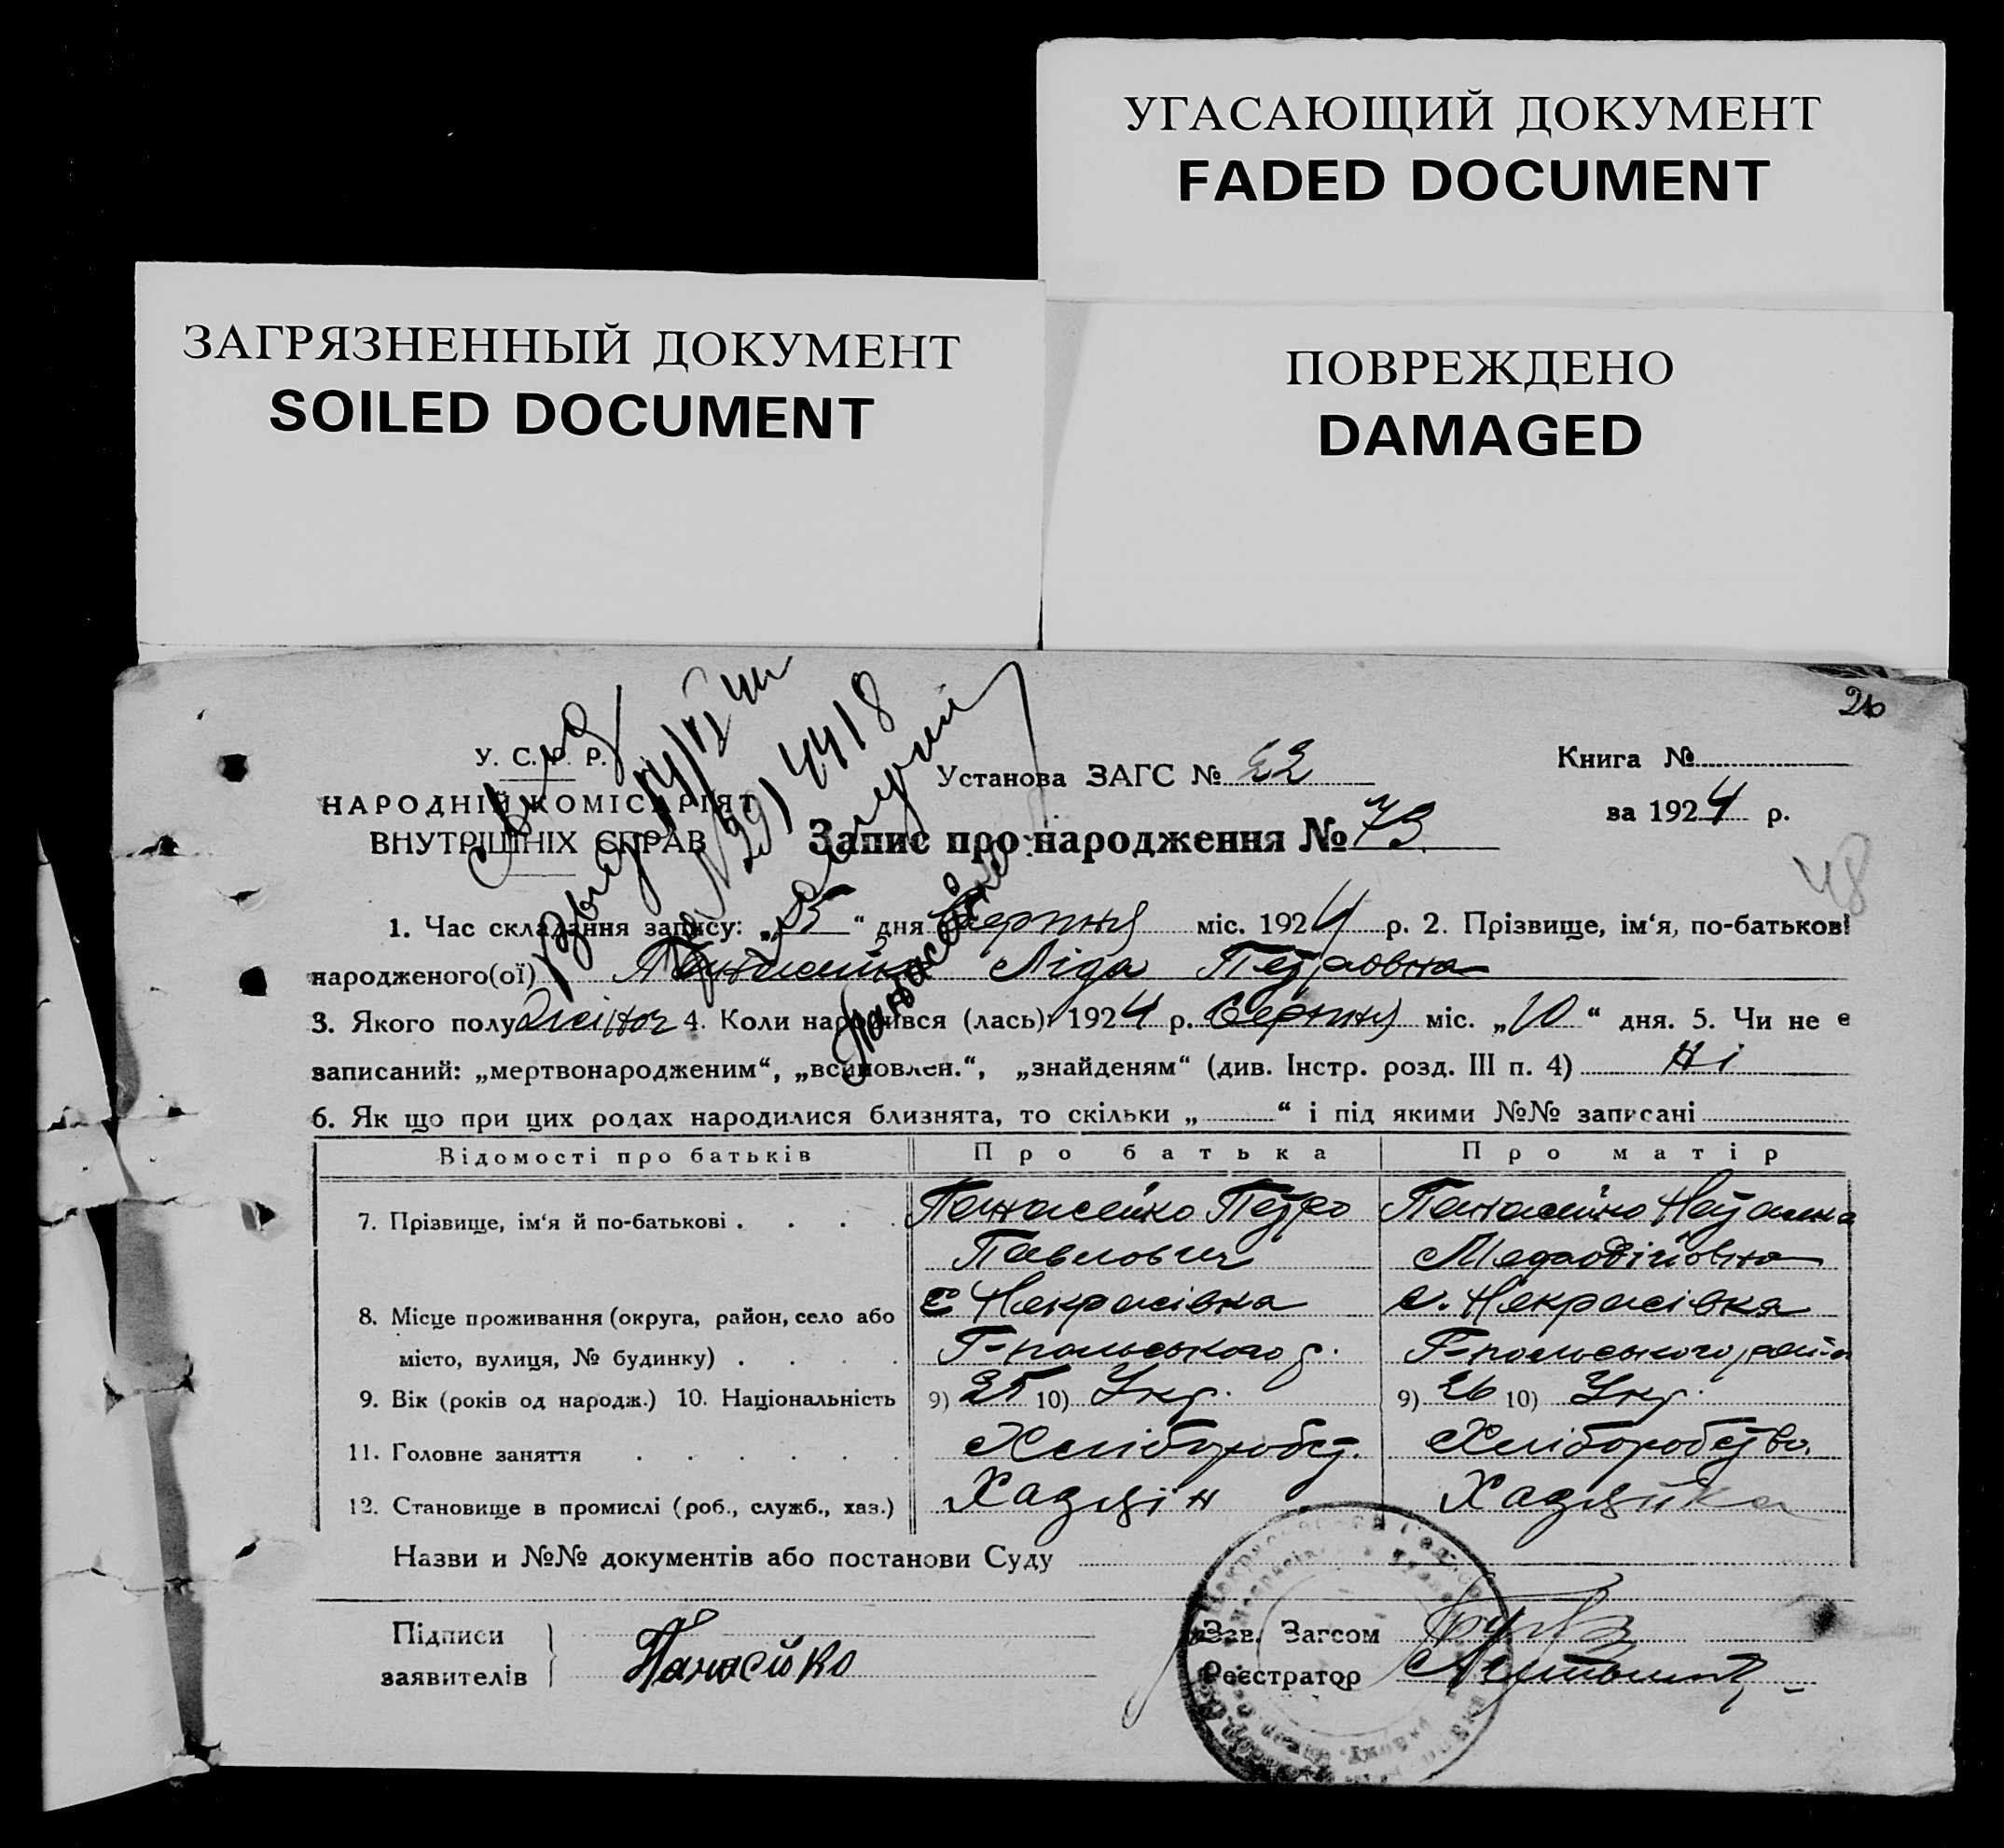 УГАСАЮЩИЙ ДОКУМЕНТ
FADED DOCUMENT
ЗАГРЯЗНЕННЫЙ ДОКУМЕНТ
SOILED DOCUMENT
ПОВРЕЖДЕНО
DAMAGED
26
У. С. Р. Р.
НАРОДНІЙ КОМІСАРІЯТ
ВНУТРІШНІХ СПРАВ
Установа ЗАГС № 22
Книга №
за 1924 р.
Запис про народження № 73
48
1. Час складання запису: „15“ дня Серпня міс. 1924 р. 2. Прізвище, ім‘я, по-батькові
народженого(ої) Панасейко Ліда Петровна
3. Якого полу жіноч 4. Коли народився (лась): 1924 р. Серпня міс. „10“ дня. 5. Чи не є
записаний: „мертвонародженим“, „всиновлен.“, „знайденям“ (див. Інстр. розд. III п. 4) Ні
6. Як що при цих родах народилися близнята, то скільки „ “ і під якими №№ записані
Відомості про батьків Про батька Про матір
7. Прізвище, ім‘я й по-батькові . . . . Панасейко Петро Панасейко Наталка
Павлович Мефодіївна
8. Місце проживання (округа, район, село або с. Некрасівка с. Некрасівка
місто, вулиця, № будинку) . . . . Г-польського р. Г-польського
9. Вік (років од народж.) 10. Національність 9) 25 10) Укр. 9) 26 10) Укр.
11. Головне заняття . . . . . . Хліборобст. Хліборобство.
12. Становище в промислі (роб., служб., хаз.) Хазяін Хазяйка
Назви и №№ документів або постанови Суду
Підписи
заявителів
Панасйко
Зав. Загсом
Реєстратор